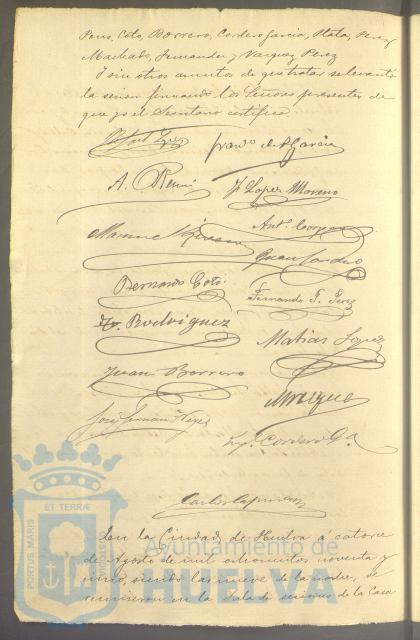 Pons, Coto, Borrero, Cordero Garcia, Plata, Perez
Machado, Fernandez y Vazquez Perez
Y sin otros asuntos de que tratar se levantó
la sesion firmando los Señores presentes de
que yo el Secretario certifico
Franco de A Garcia
A.
J Lopez Moreno
Manuel
Anto
Juan Cordero
Bernardo Coto.
Fernando T. Perez
Rodriguez
Matias Lopez
Juan Borrero
Vazquez
José
Cordero Ga
Carlos
En la Ciudad de Huelva á catorce
de Agosto de mil ochocientos noventa y
uno, siendo las nueve de la noche, se
reunieron en la Sala de sesiones de la Casa
ET TERRÆ
PORTUS MARIS
CUSTODIA
Ayuntamiento de
HUELVA